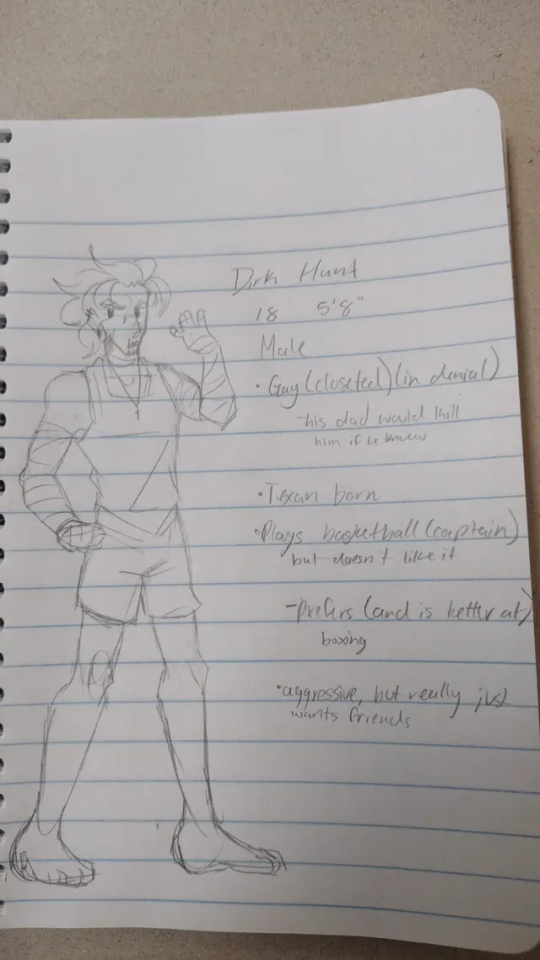 Dirk Hunt
18 5'8"
Male
• Gay (closeted) (in denial)
-his dad would kill
him if he knew
• Texan born
• Plays basketball (captain)
but doesn't like it
-prefers (and is better at)
boxing
• aggressive, but really just
wants friends